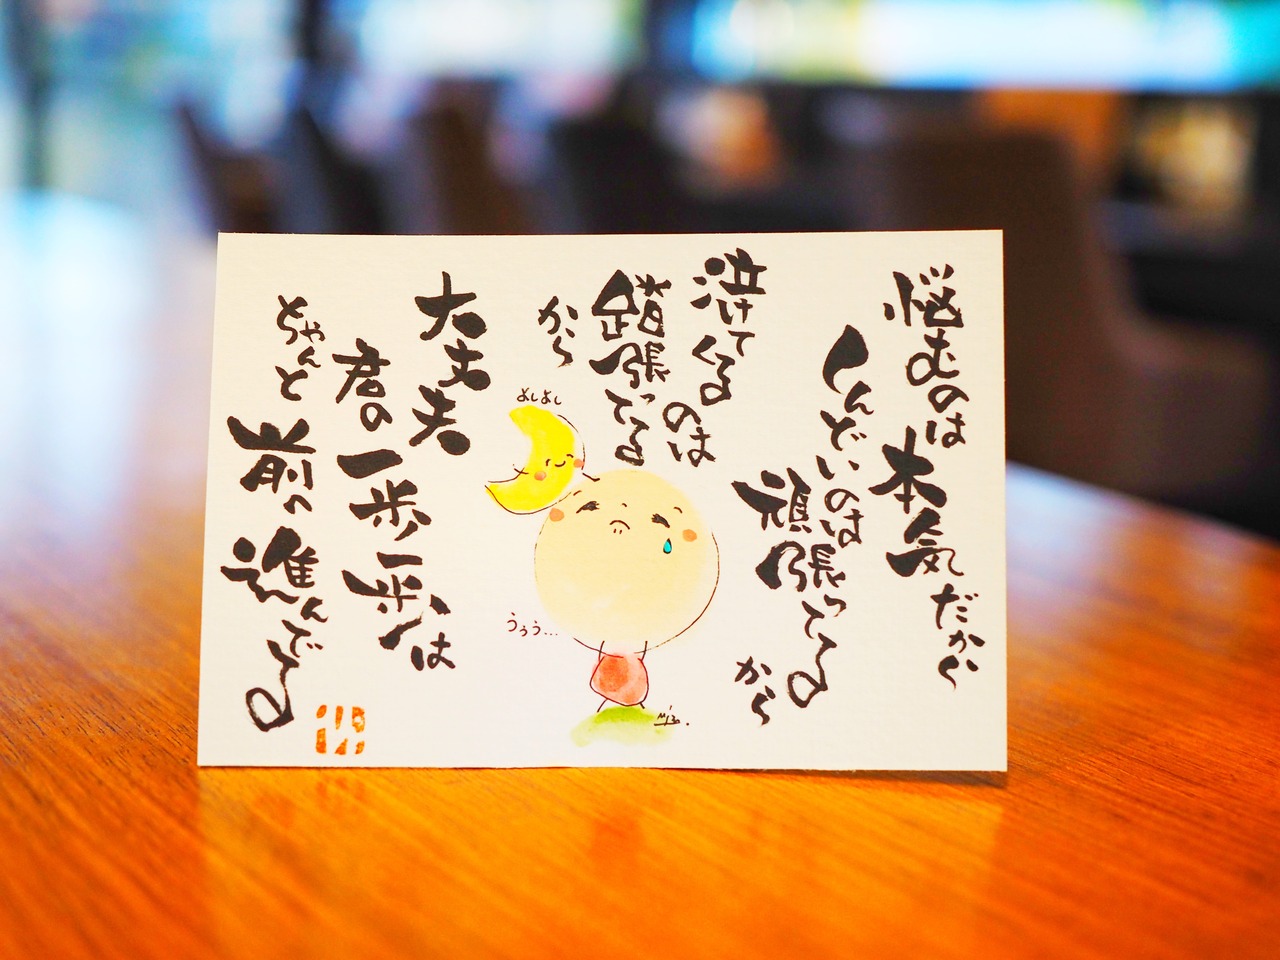 悩むのは本気だから
しんどいのは
頑張ってる
から
泣けてくる
のは
踏張ってる
から
大丈夫
君の一歩一歩は
ちゃんと
前へ進んでる
よしよし
うぅぅ…